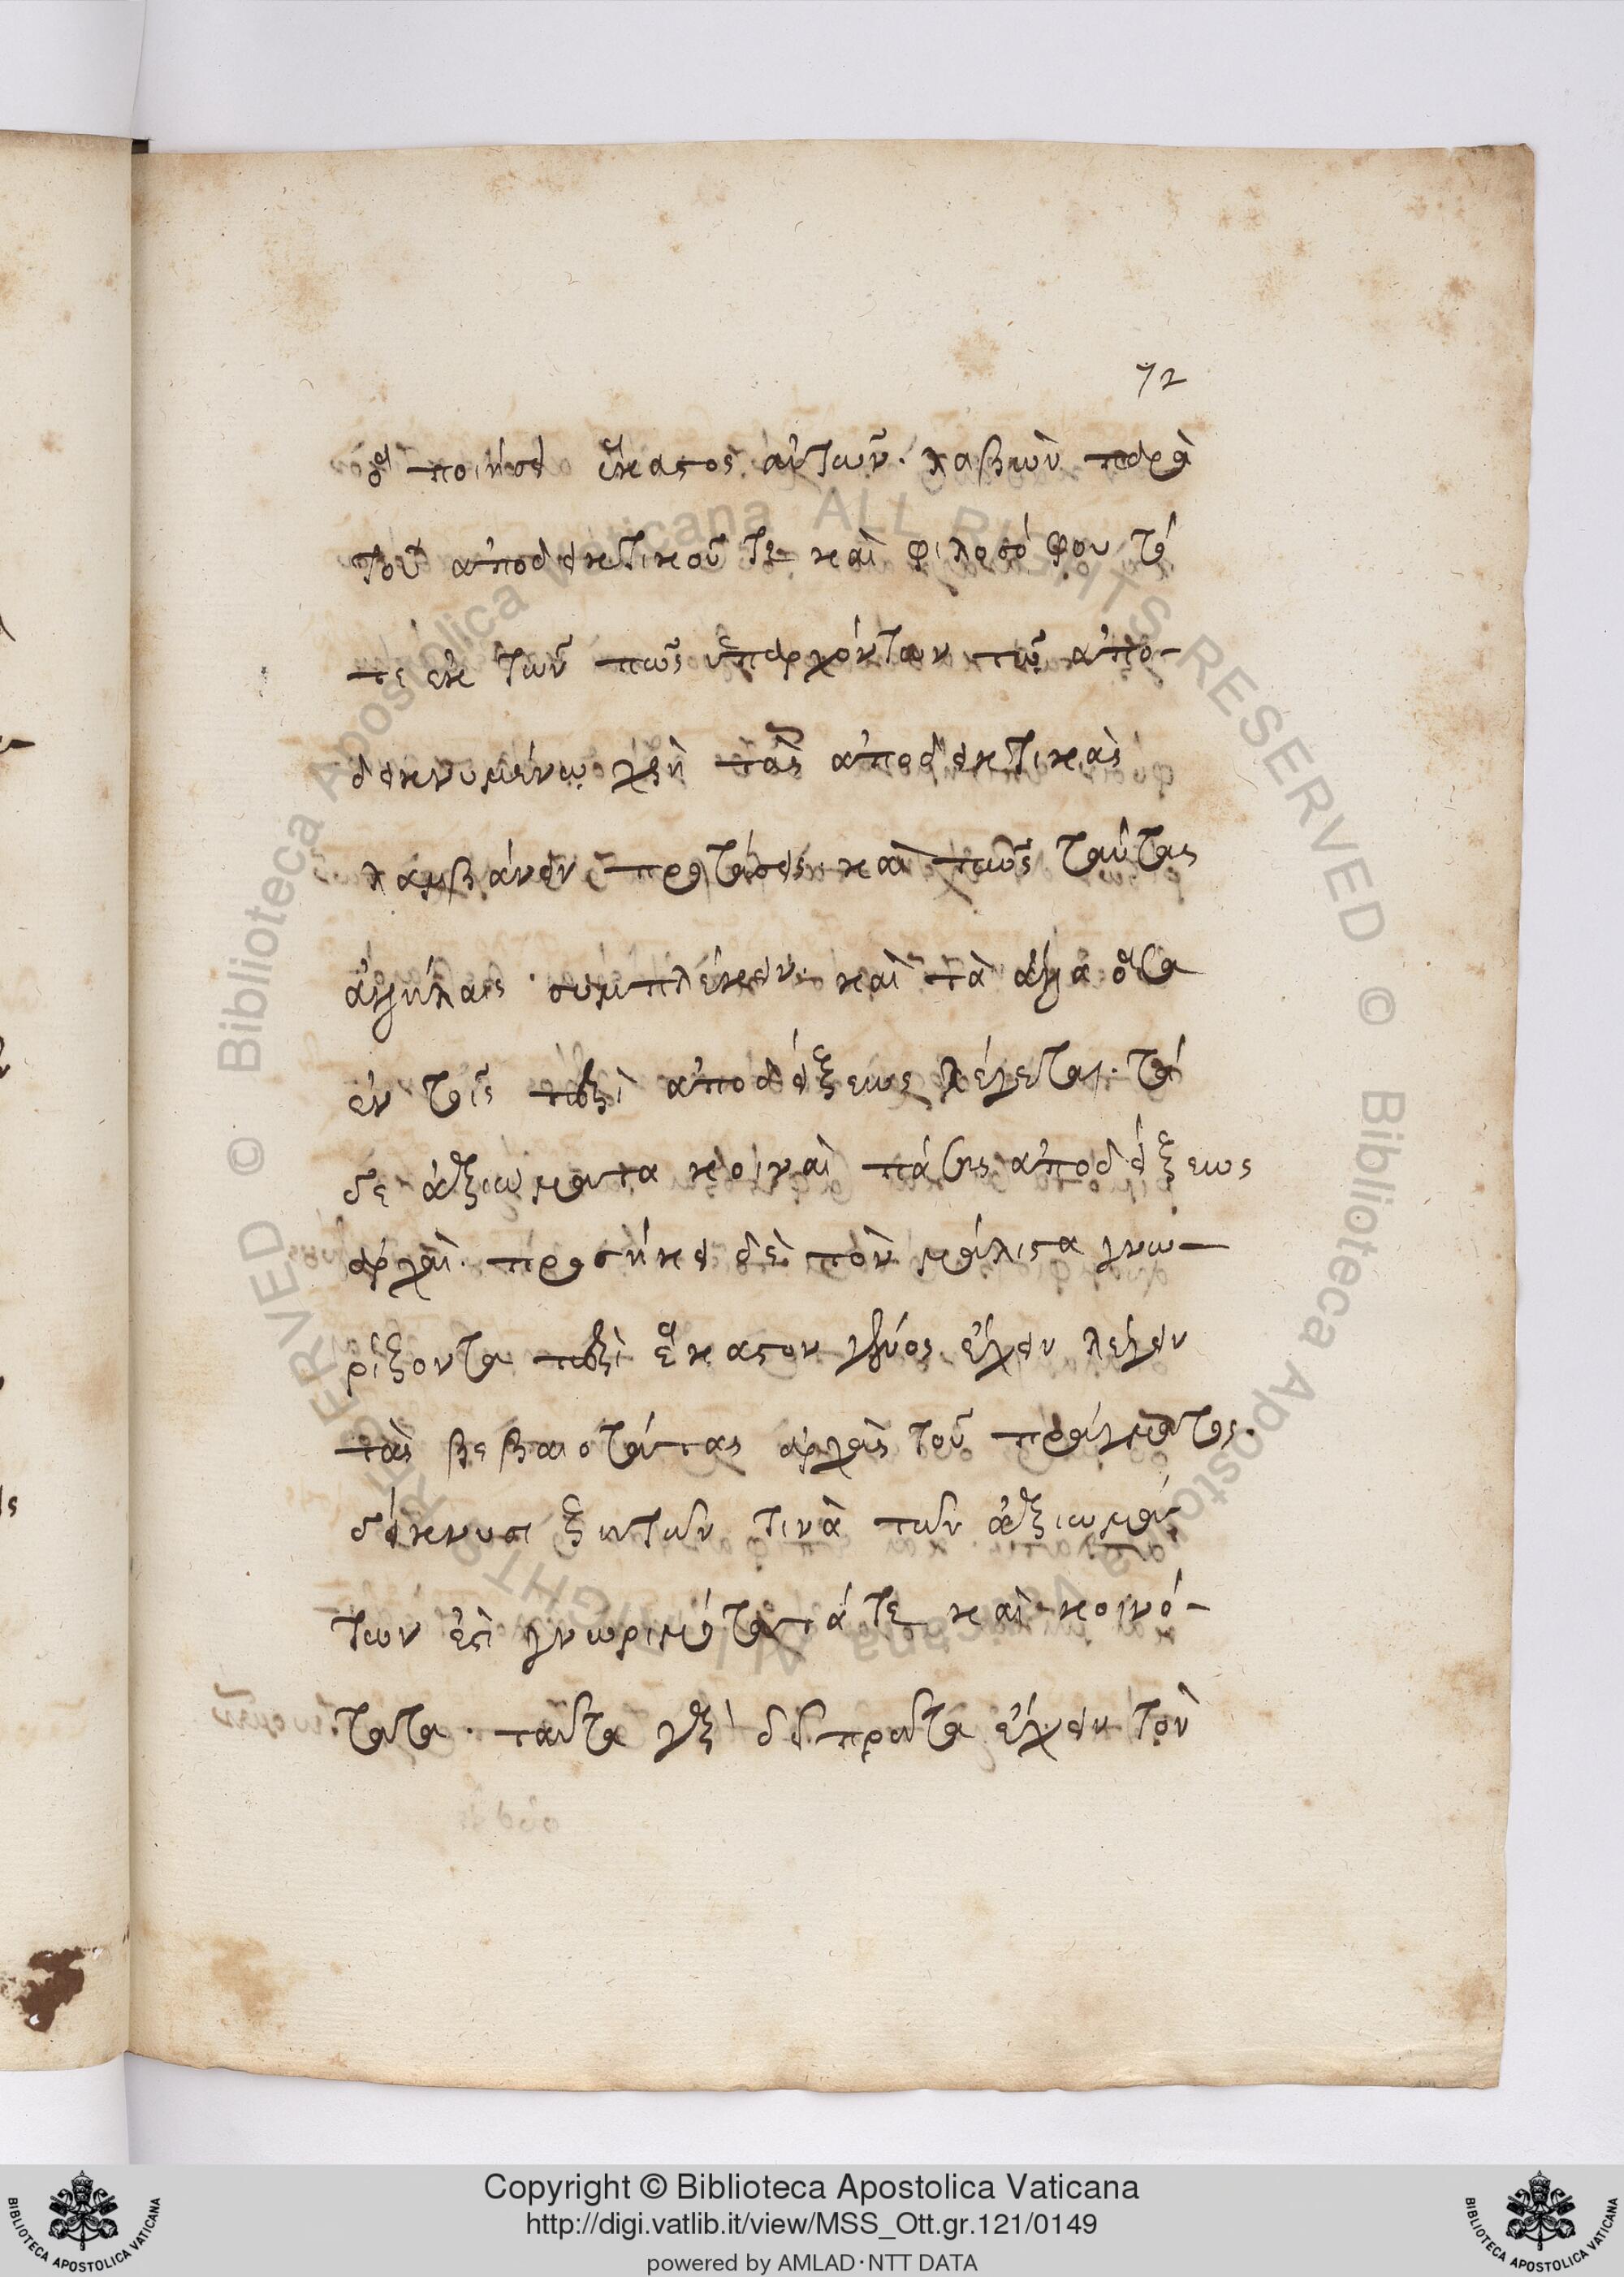 72
ὃ ποιήσει ἕκαστος αὐτῶν· λαβὼν παρὰ
τοῦ ἀποδεικτικοῦ τε καὶ φιλοσόφου τί
τε ἐκ τῶν πῶς ὑπαρχόντων τῷ ἀπο-
δεικνυμένῳ χρὴ τὰς ἀποδεικτικὰς
λαμβάνειν προτάσεις· καὶ πῶς ταύτας
ἀλλήλαις συμπλέκειν· καὶ τὰ ἄλλα ὅσα
ἐν τοῖς περὶ ἀποδείξεως λέγεται· τὰ
δε ἀξιώματα κοιναὶ πάσης ἀποδείξεως
ἀρχαὶ· προσήκει δὲ τὸν μάλιστα γνω-
ρίζοντα περὶ ἕκαστον γένος ἔχειν λέγειν
τὰς βεβαιοτάτας ἀρχὰς τοῦ πράγματος·
δείκνυσι ζητῶν τινὰ τῶν ἀξιωμά
των ἐστὶ γνωριμώτατά τε καὶ κοινό-
τατα· ταῦτα γὰρ δεῖ πρῶτα ἔχειν τὸν
Copyright © Biblioteca Apostolica Vaticana
http://digi.vatlib.it/view/MSS_Ott.gr.121/0149
powered by AMLAD·NTT DATA
BIBLIOTECA APOSTOLICA VATICANA
BIBLIOTECA APOSTOLICA VATICANA